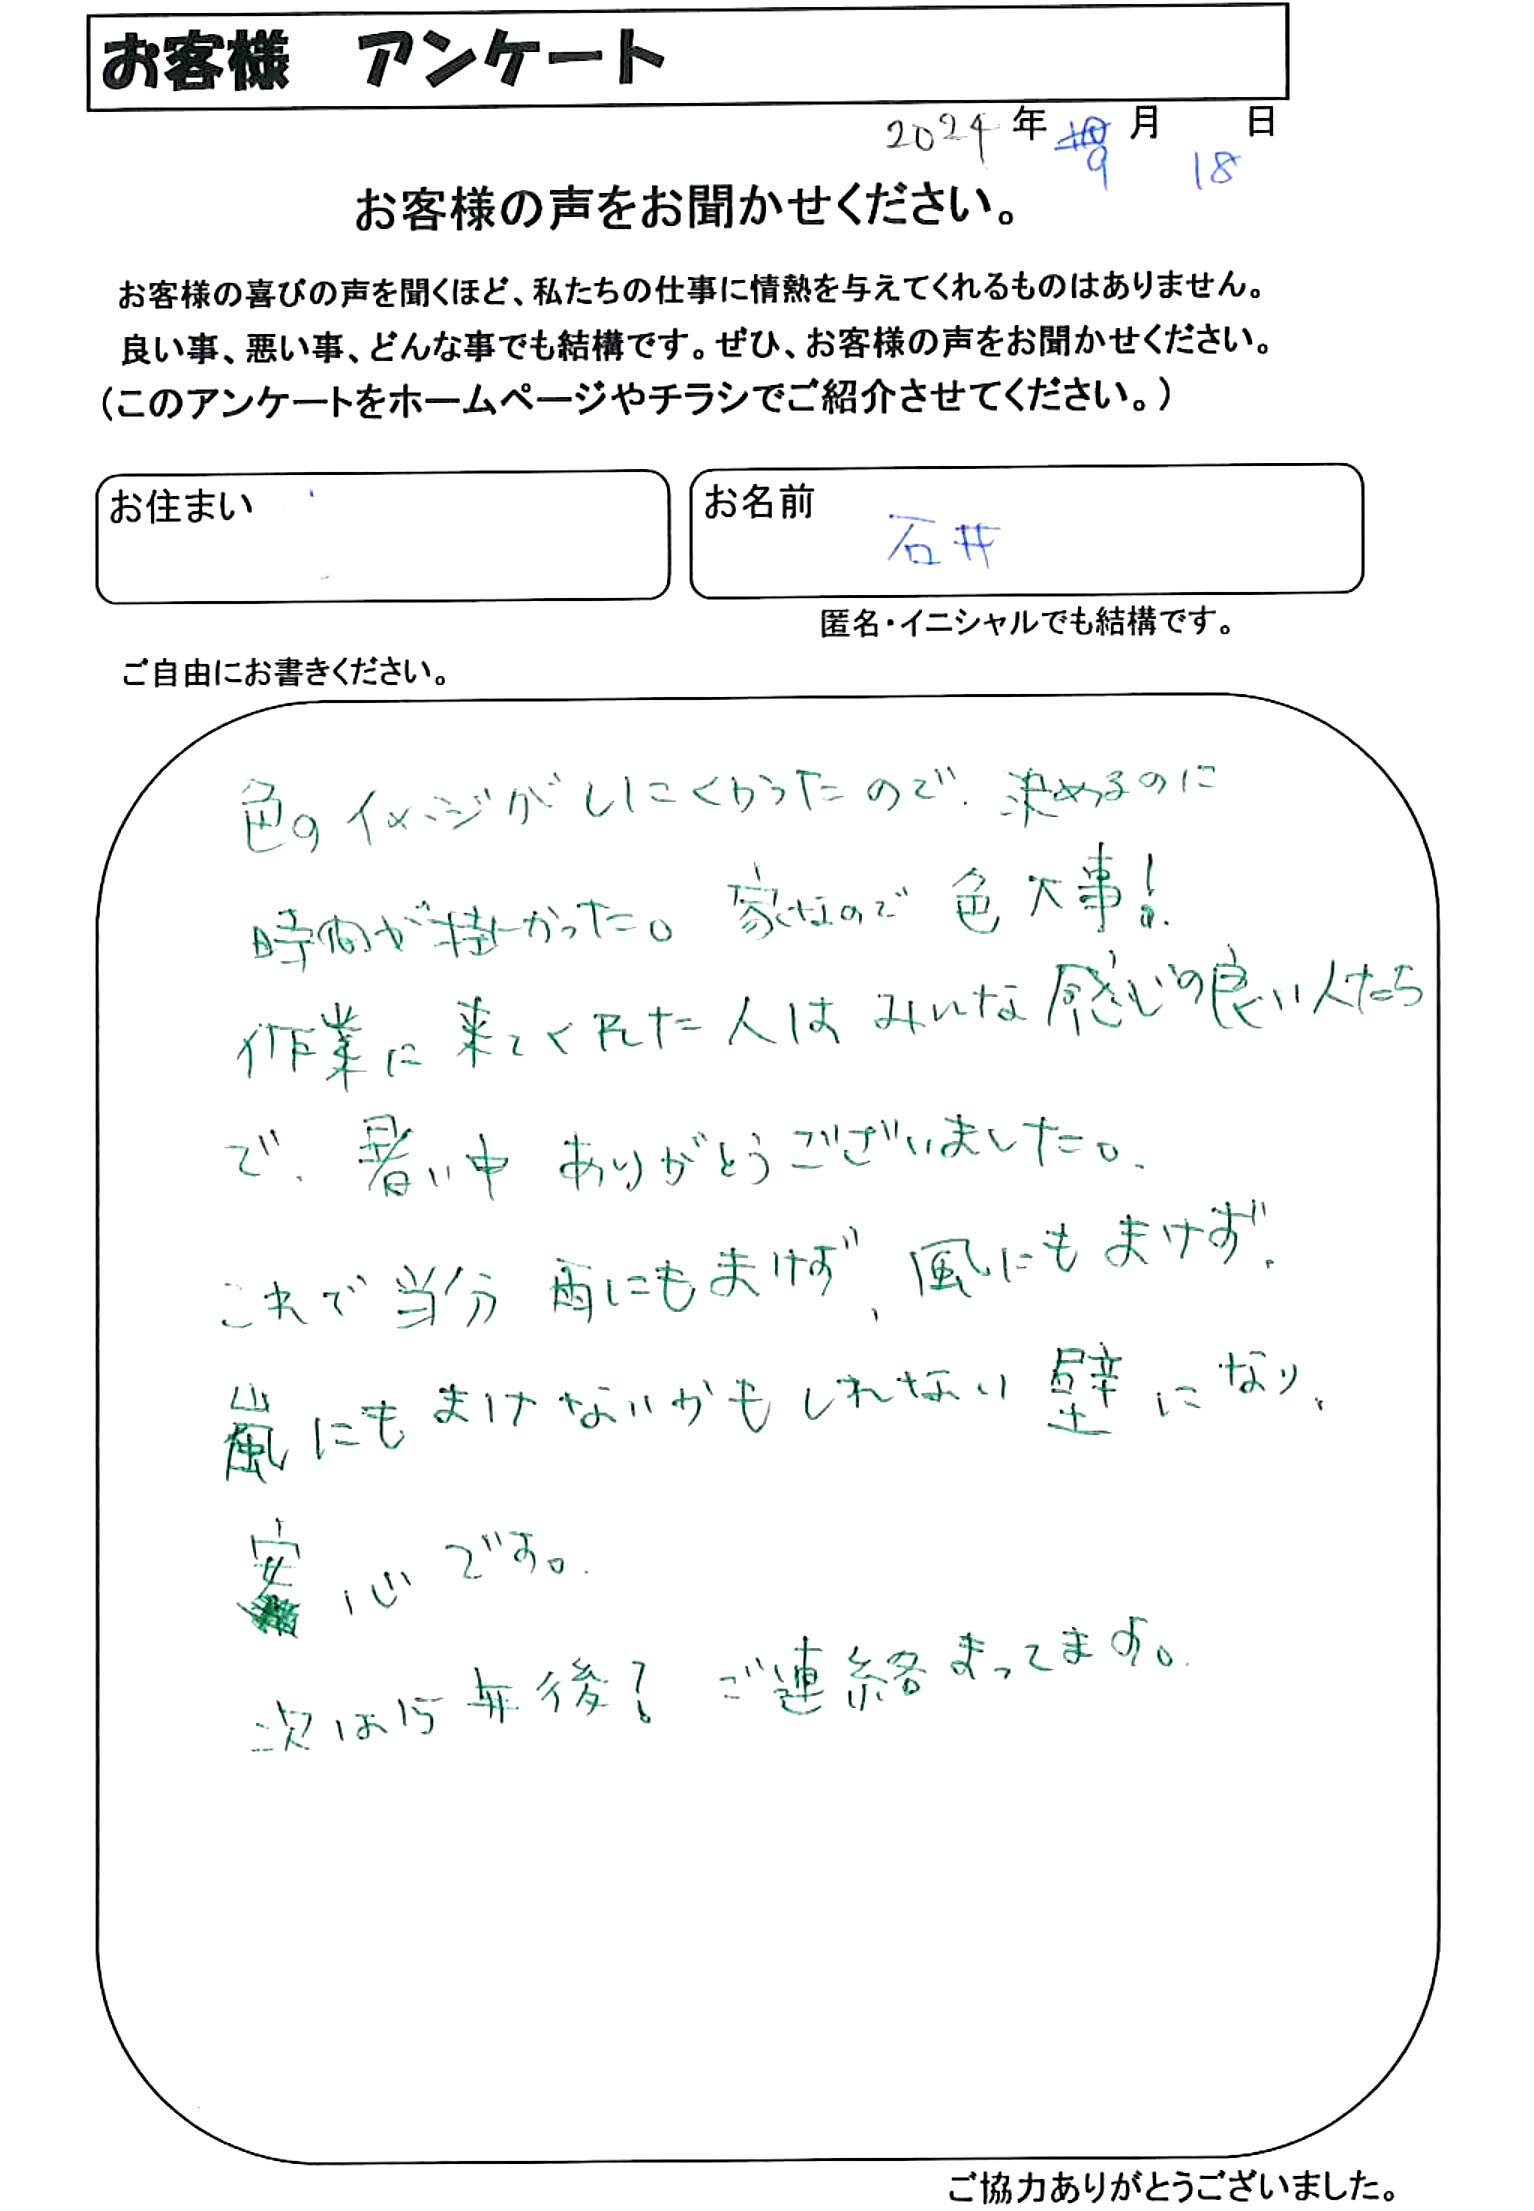 お客様 アンケート
2024年 9月 18日
お客様の声をお聞かせください。
お客様の喜びの声を聞くほど、私たちの仕事に情熱を与えてくれるものはありません。
良い事、悪い事、どんな事でも結構です。ぜひ、お客様の声をお聞かせください。
（このアンケートをホームページやチラシでご紹介させてください。）
お住まい
お名前 石井
匿名・イニシャルでも結構です。
ご自由にお書きください。
色のイメージがしにくかったので、決めるのに
時間が掛かった。家なので色大事！
作業に来てくれた人はみんな感じの良い人たち
で、暑い中ありがとうございました。
これで当分雨にもまけず、風にもまけず、
嵐にもまけないかもしれない壁になり、
安心です。
次は15年後？ご連絡まってます。
ご協力ありがとうございました。